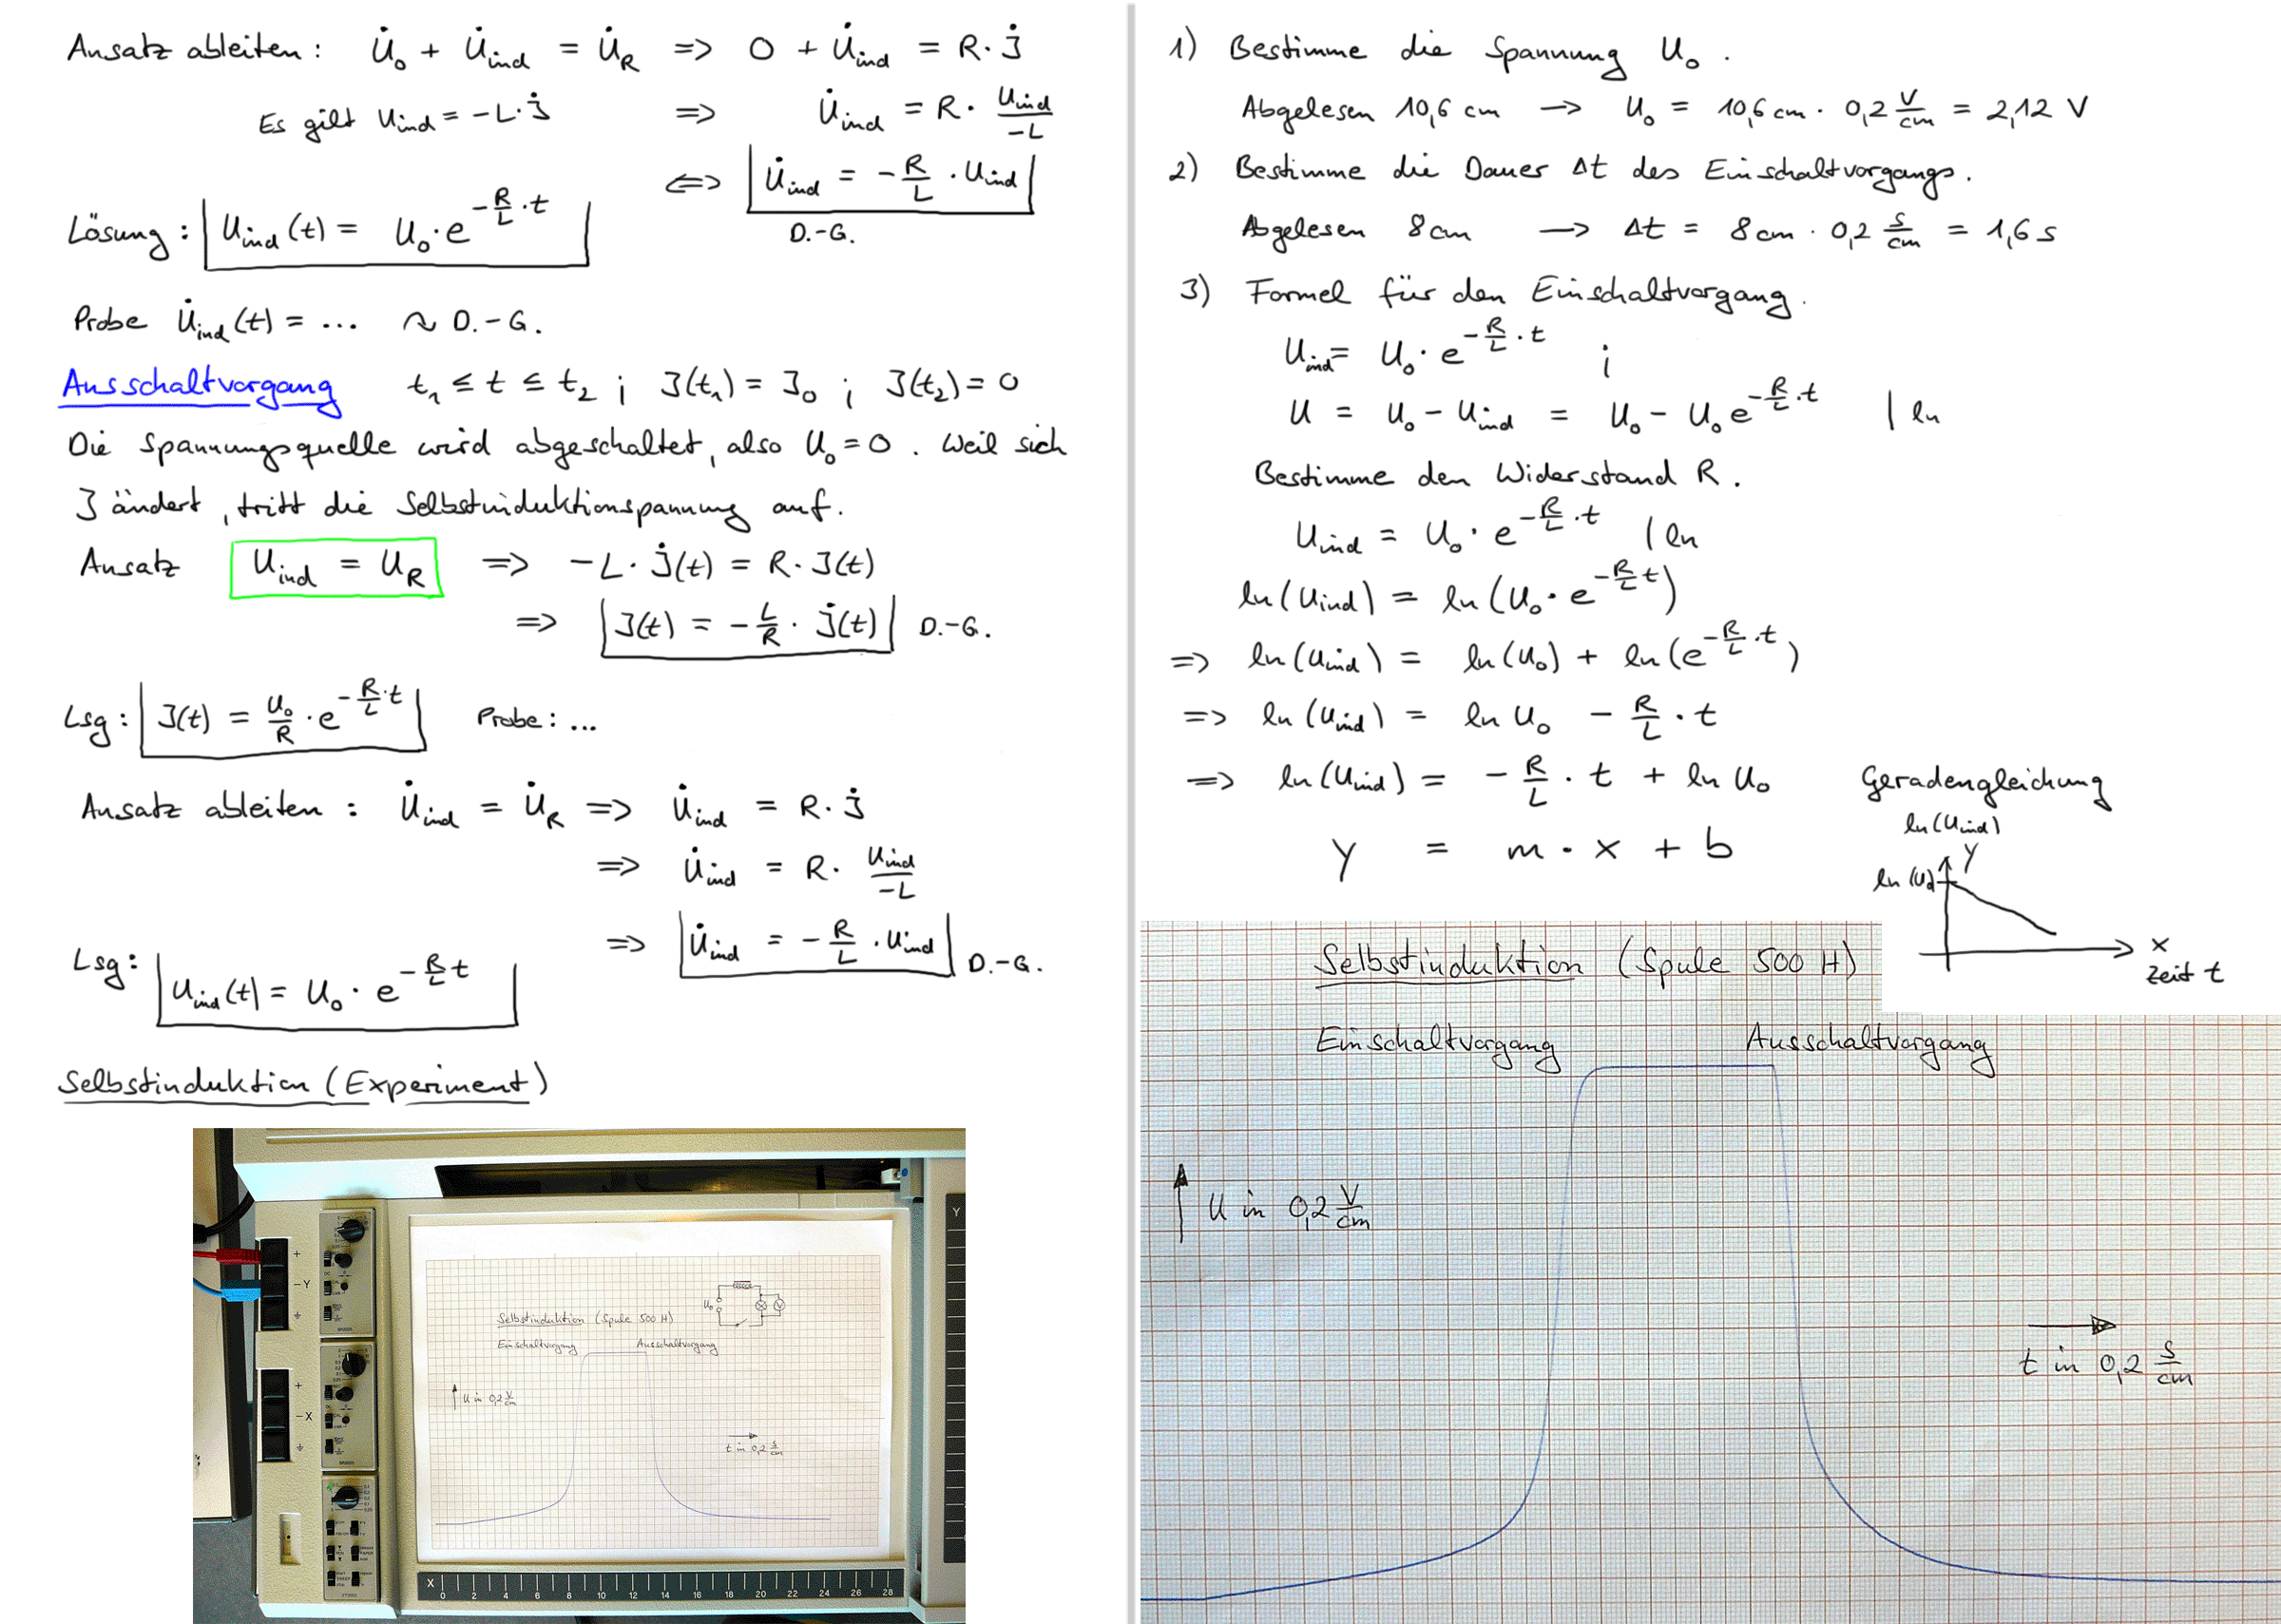 Ansatz ableiten: U̇₀ + U̇ind = U̇R => 0 + U̇ind = R·J̇
Es gilt Uind = -L·J̇ => U̇ind = R · Uind/-L
<=> U̇ind = -R/L · Uind
D.-G.
Lösung: Uind(t) = U₀·e^(-R/L·t)
Probe U̇ind(t) = ... ~ D.-G.
Ausschaltvorgang t₁ ≤ t ≤ t₂ ; J(t₁) = J₀ ; J(t₂) = 0
Die Spannungsquelle wird abgeschaltet, also U₀ = 0. Weil sich
J ändert, tritt die Selbstinduktionspannung auf.
Ansatz Uind = UR => -L·J̇(t) = R·J(t)
=> J(t) = -L/R · J̇(t) D.-G.
Lsg: J(t) = U₀/R · e^(-R/L·t) Probe: ...
Ansatz ableiten: U̇ind = U̇R => U̇ind = R·J̇
=> U̇ind = R · Uind/-L
=> U̇ind = -R/L · Uind D.-G.
Lsg: Uind(t) = U₀ · e^(-R/L t)
Selbstinduktion (Experiment)
Selbstinduktion (Spule 500 H)
U₀
V
Einschaltvorgang Ausschaltvorgang
U in 0,2 V/cm
t in 0,2 s/cm
+
-Y
+
-X
Y
X 0 2 4 6 8 10 12 14 16 18 20 22 24 26 28
1) Bestimme die Spannung U₀.
Abgelesen 10,6 cm -> U₀ = 10,6 cm · 0,2 V/cm = 2,12 V
2) Bestimme die Dauer Δt des Einschaltvorgangs.
Abgelesen 8 cm -> Δt = 8 cm · 0,2 s/cm = 1,6 s
3) Formel für den Einschaltvorgang.
Uind = U₀ · e^(-R/L·t) ;
U = U₀ - Uind = U₀ - U₀ e^(-R/L·t) | ln
Bestimme den Widerstand R.
Uind = U₀ · e^(-R/L·t) | ln
ln(Uind) = ln(U₀ · e^(-R/L t))
=> ln(Uind) = ln(U₀) + ln(e^(-R/L·t))
=> ln(Uind) = ln U₀ - R/L · t
=> ln(Uind) = -R/L · t + ln U₀ Geradengleichung
y = m · x + b
ln(Uind)
y
ln(U₀)
x
Zeit t
Selbstinduktion (Spule 500 H)
Einschaltvorgang Ausschaltvorgang
U in 0,2 V/cm
t in 0,2 s/cm